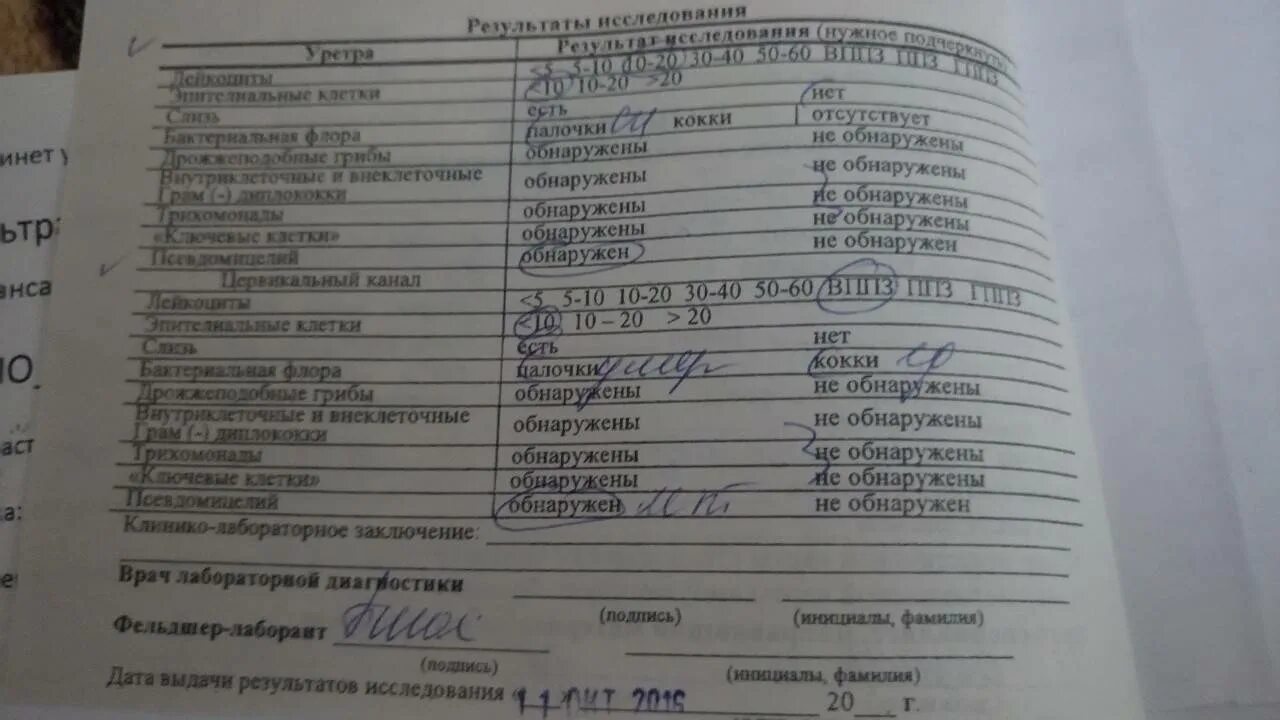 Результаты исследования
Уретра Результат исследования (нужное подчеркнуть)
Лейкоциты <5 5-10 10-20 30-40 50-60 ВППЗ ППЗ ГППЗ
Эпителиальные клетки <10 10-20 >20
Слизь есть нет
Бактериальная флора палочки кокки отсутствует
Дрожжеподобные грибы обнаружены не обнаружены
Внутриклеточные и внеклеточные обнаружены не обнаружены
Грам (-) диплококки
Трихомонады обнаружены не обнаружены
«Ключевые клетки» обнаружены не обнаружены
Псевдомицелий обнаружен не обнаружен
Цервикальный канал
Лейкоциты <5 5-10 10-20 30-40 50-60 ВППЗ ППЗ ГППЗ
Эпителиальные клетки <10 10 – 20 > 20
Слизь есть нет
Бактериальная флора палочки умер кокки
Дрожжеподобные грибы обнаружены не обнаружены
Внутриклеточные и внеклеточные обнаружены не обнаружены
Грам (-) диплококки
Трихомонады обнаружены не обнаружены
«Ключевые клетки» обнаружены не обнаружены
Псевдомицелий обнаружен не обнаружен
Клинико-лабораторное заключение:
Врач лабораторной диагностики
(подпись) (инициалы, фамилия)
Фельдшер-лаборант
(подпись) (инициалы, фамилия)
Дата выдачи результатов исследования « 11 ОКТ 2016 20 г.